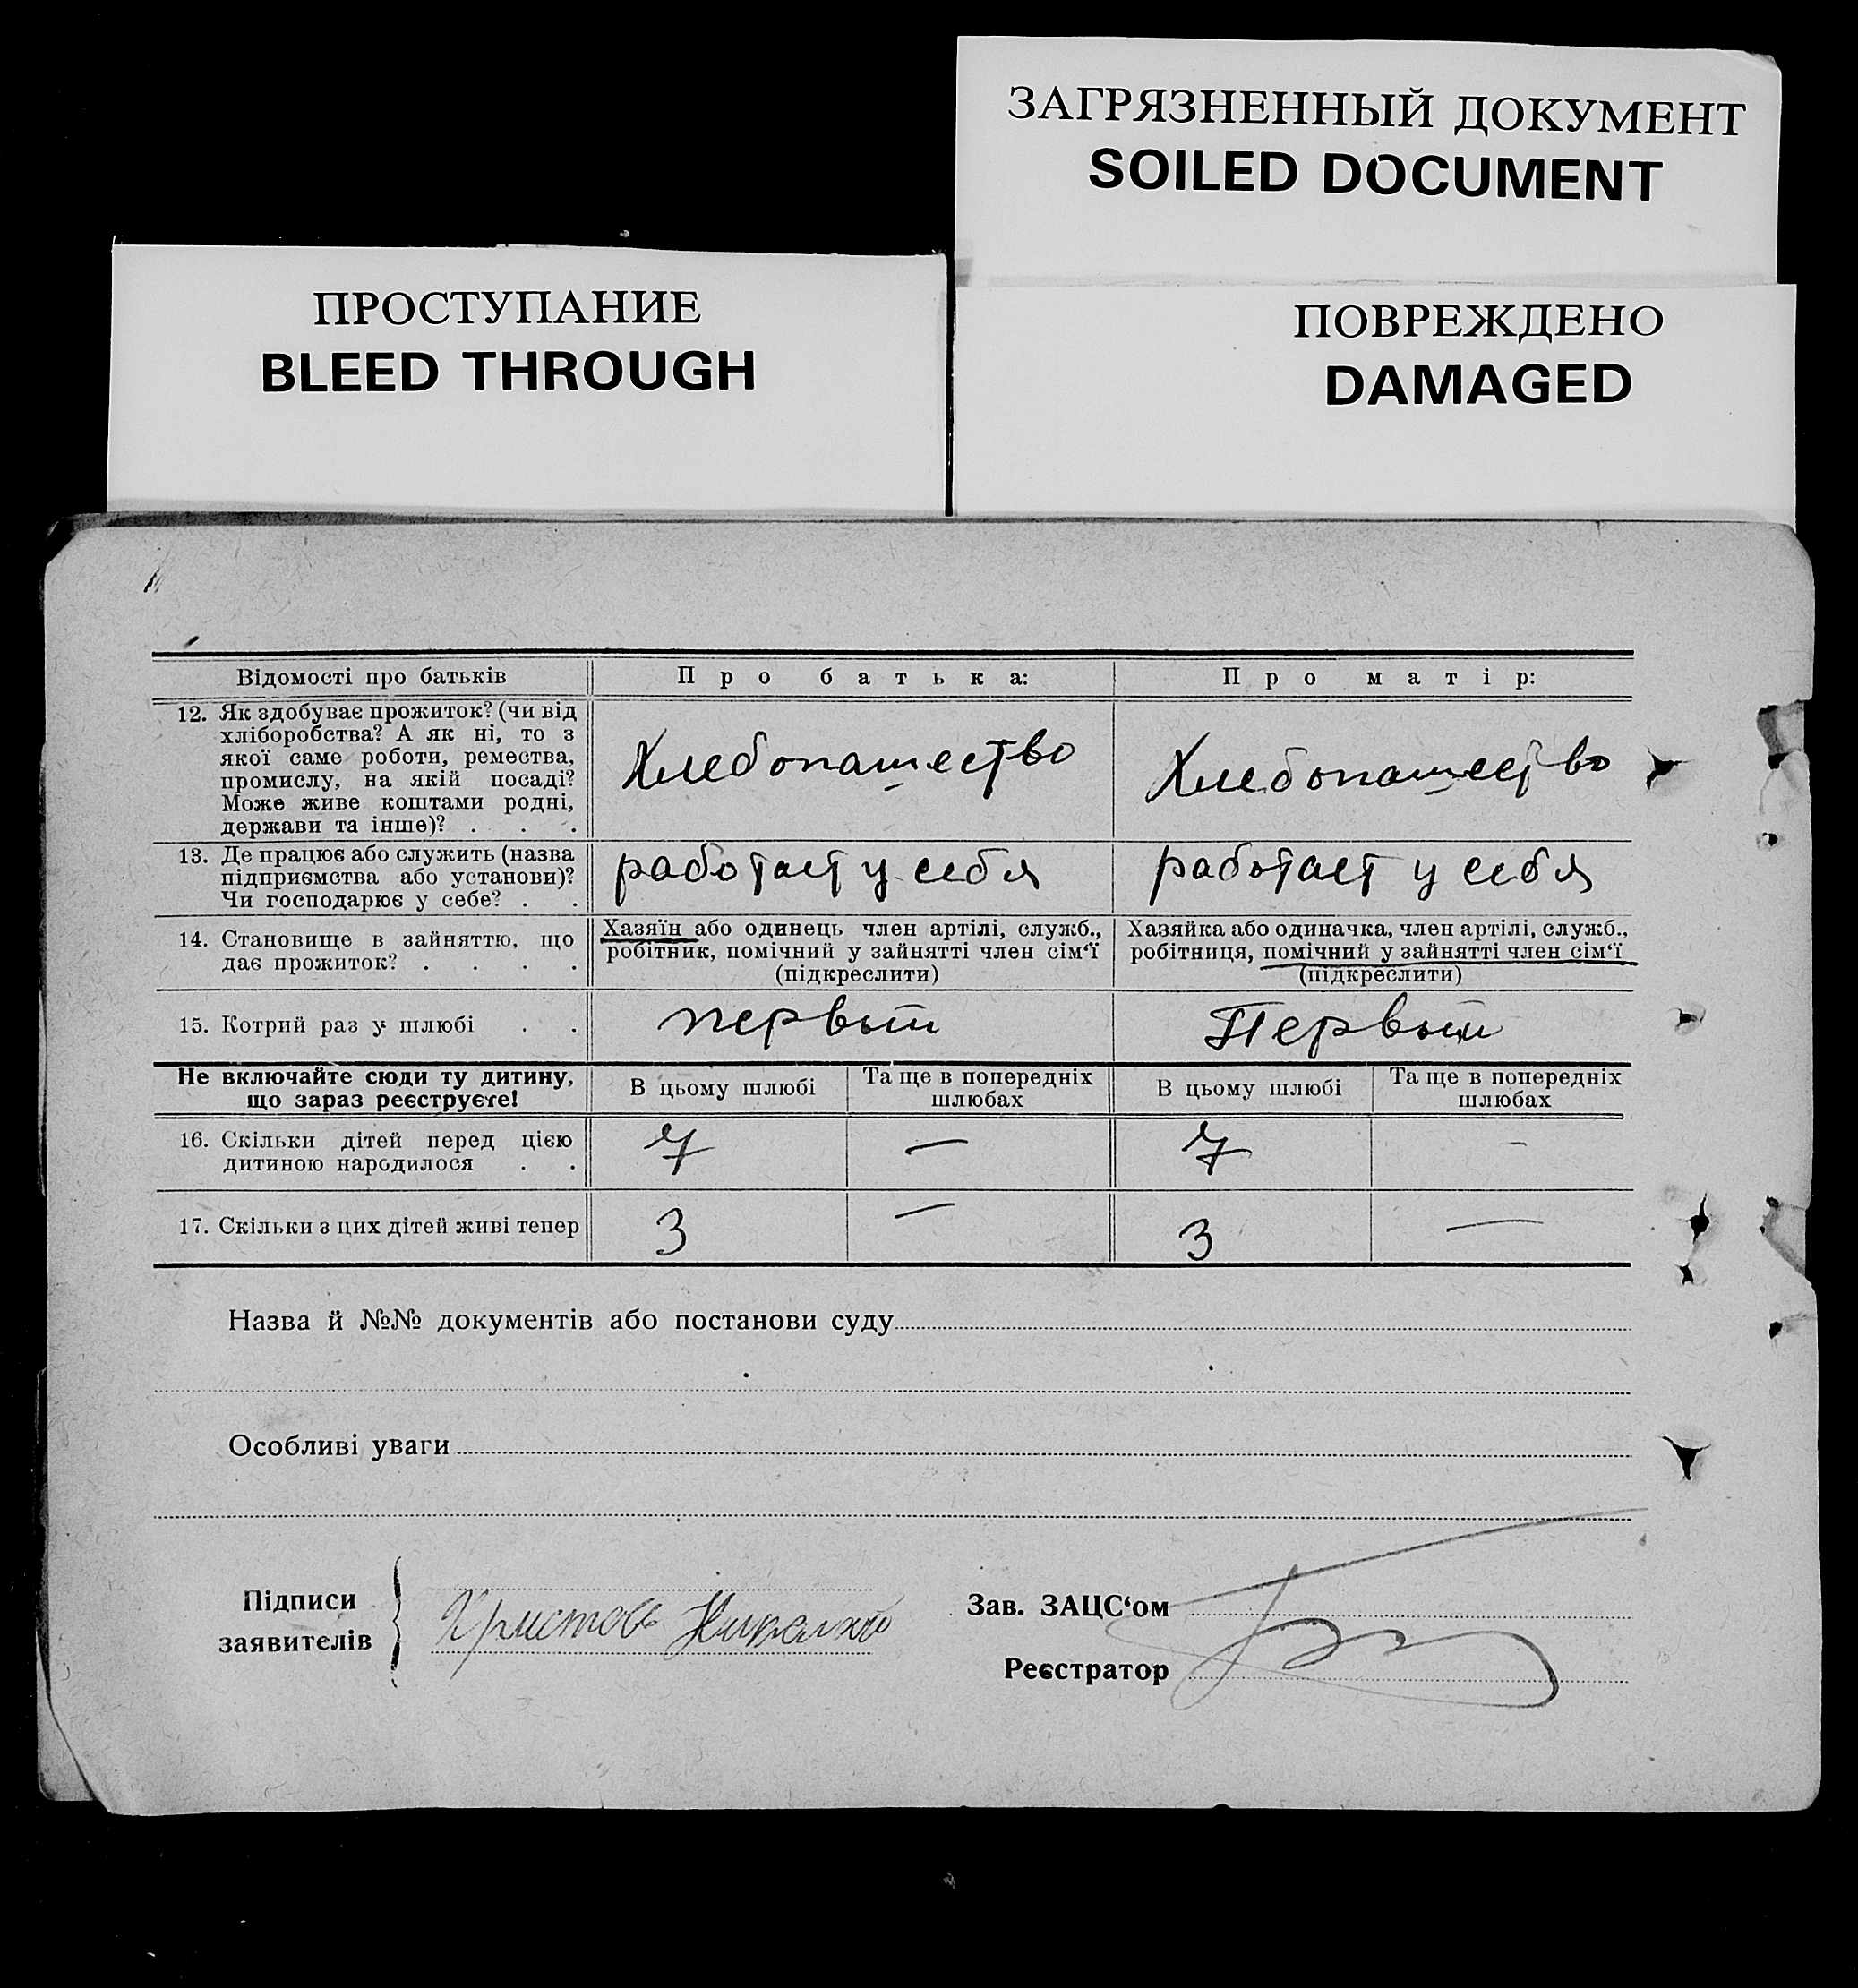 ЗАГРЯЗНЕННЫЙ ДОКУМЕНТ
SOILED DOCUMENT
ПРОСТУПАНИЕ
BLEED THROUGH
ПОВРЕЖДЕНО
DAMAGED
Відомості про батьків
Про батька:
Про матір:
12. Як здобуває прожиток? (чи від
хліборобства? А як ні, то з
якої саме роботи, ремества,
промислу, на якій посаді?
Може живе коштами родні,
держави та інше)? . . .
Хлебопашество
Хлебопашество
13. Де працює або служить (назва
підприємства або установи)?
Чи господарює у себе? . .
работает у себя
работает у себя
14. Становище в зайняттю, що
дає прожиток? . . . .
Хазяїн або одинець член артілі, служб.,
робітник, помічний у зайнятті член сім‘ї
(підкреслити)
Хазяйка або одиначка, член артілі, служб.,
робітниця, помічний у зайнятті член сім‘ї
(підкреслити)
15. Котрий раз у шлюбі . .
первый
Первый
Не включайте сюди ту дитину,
що зараз реєструєте!
В цьому шлюбі
Та ще в попередніх
шлюбах
В цьому шлюбі
Та ще в попередніх
шлюбах
16. Скільки дітей перед цією
дитиною народилося . .
7
—
7
—
17. Скільки з цих дітей живі тепер
3
—
3
—
Назва й №№ документів або постанови суду
Особливі уваги
Підписи
заявителів
Христовъ
Зав. ЗАЦС‘ом
Реєстратор